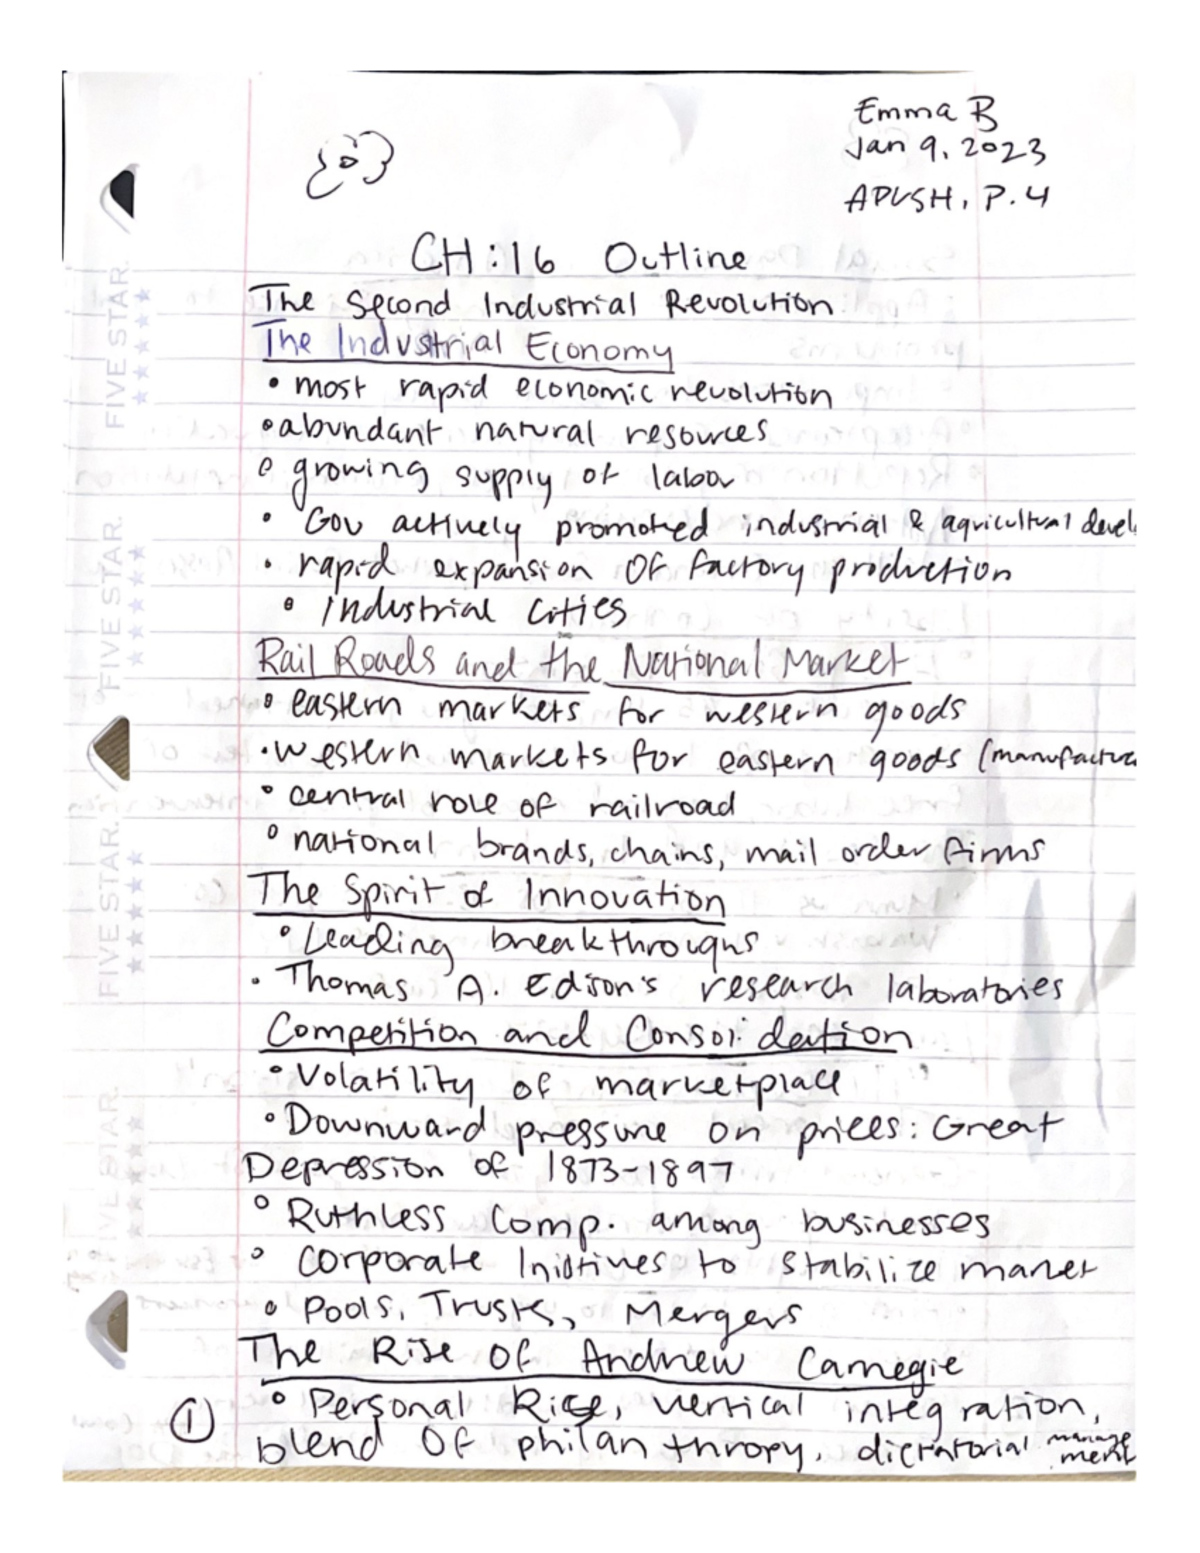 Emma B
Jan 9, 2023
APUSH, P.4
CH:16 Outline
The Second Industrial Revolution
The Industrial Economy
• most rapid economic revolution
• abundant natural resources
• growing supply of labor
• Gov actively promoted industrial & agricultural devel
• rapid expansion Of factory production
• Industrial Cities
Rail Roads and the National Market
• eastern markets for western goods
• Western markets for eastern goods (manufactur
• central role of railroad
• national brands, chains, mail order firms
The Spirit of Innovation
• Leading breakthroughs
• Thomas A. Edison's research laboratories
Competition and Consolidation
• Volatility of marketplace
• Downward pressure on prices: Great
Depression of 1873-1897
• Ruthless Comp. among businesses
• Corporate Iniotives to stabilize market
• Pools, Trusts, Mergers
The Rise Of Andrew Carnegie
① • Personal Rise, vertical integration,
blend Of philanthropy, dictratorial manage
ment
FIVE STAR.
FIVE STAR.
FIVE STAR.
FIVE STAR.